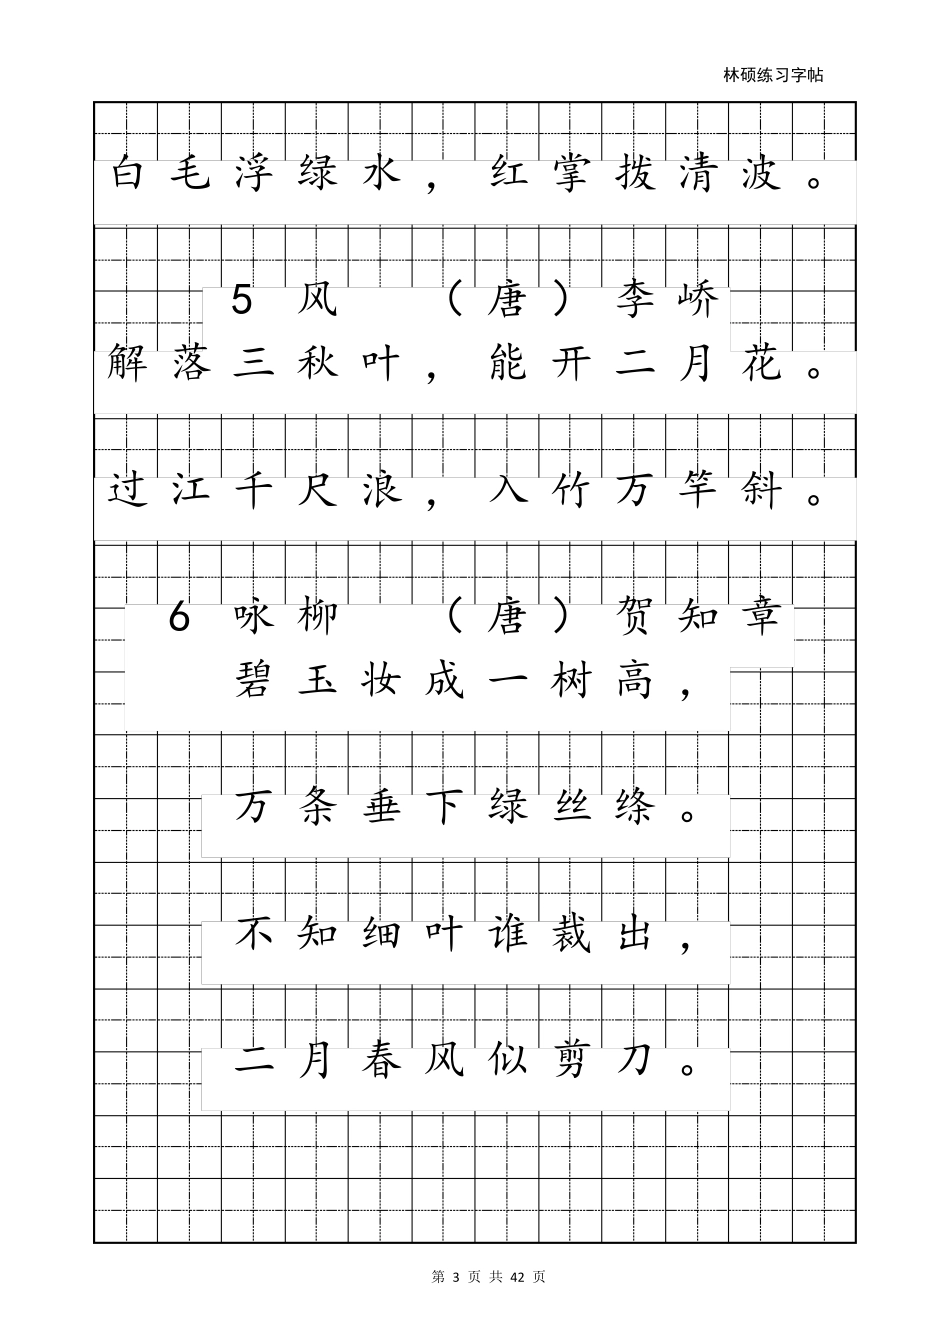 林硕练习字帖
白毛浮绿水，红掌拨清波。
5 风 （唐）李峤
解落三秋叶，能开二月花。
过江千尺浪，入竹万竿斜。
6 咏柳 （唐）贺知章
碧玉妆成一树高，
万条垂下绿丝绦。
不知细叶谁裁出，
二月春风似剪刀。
第 3 页 共 42 页